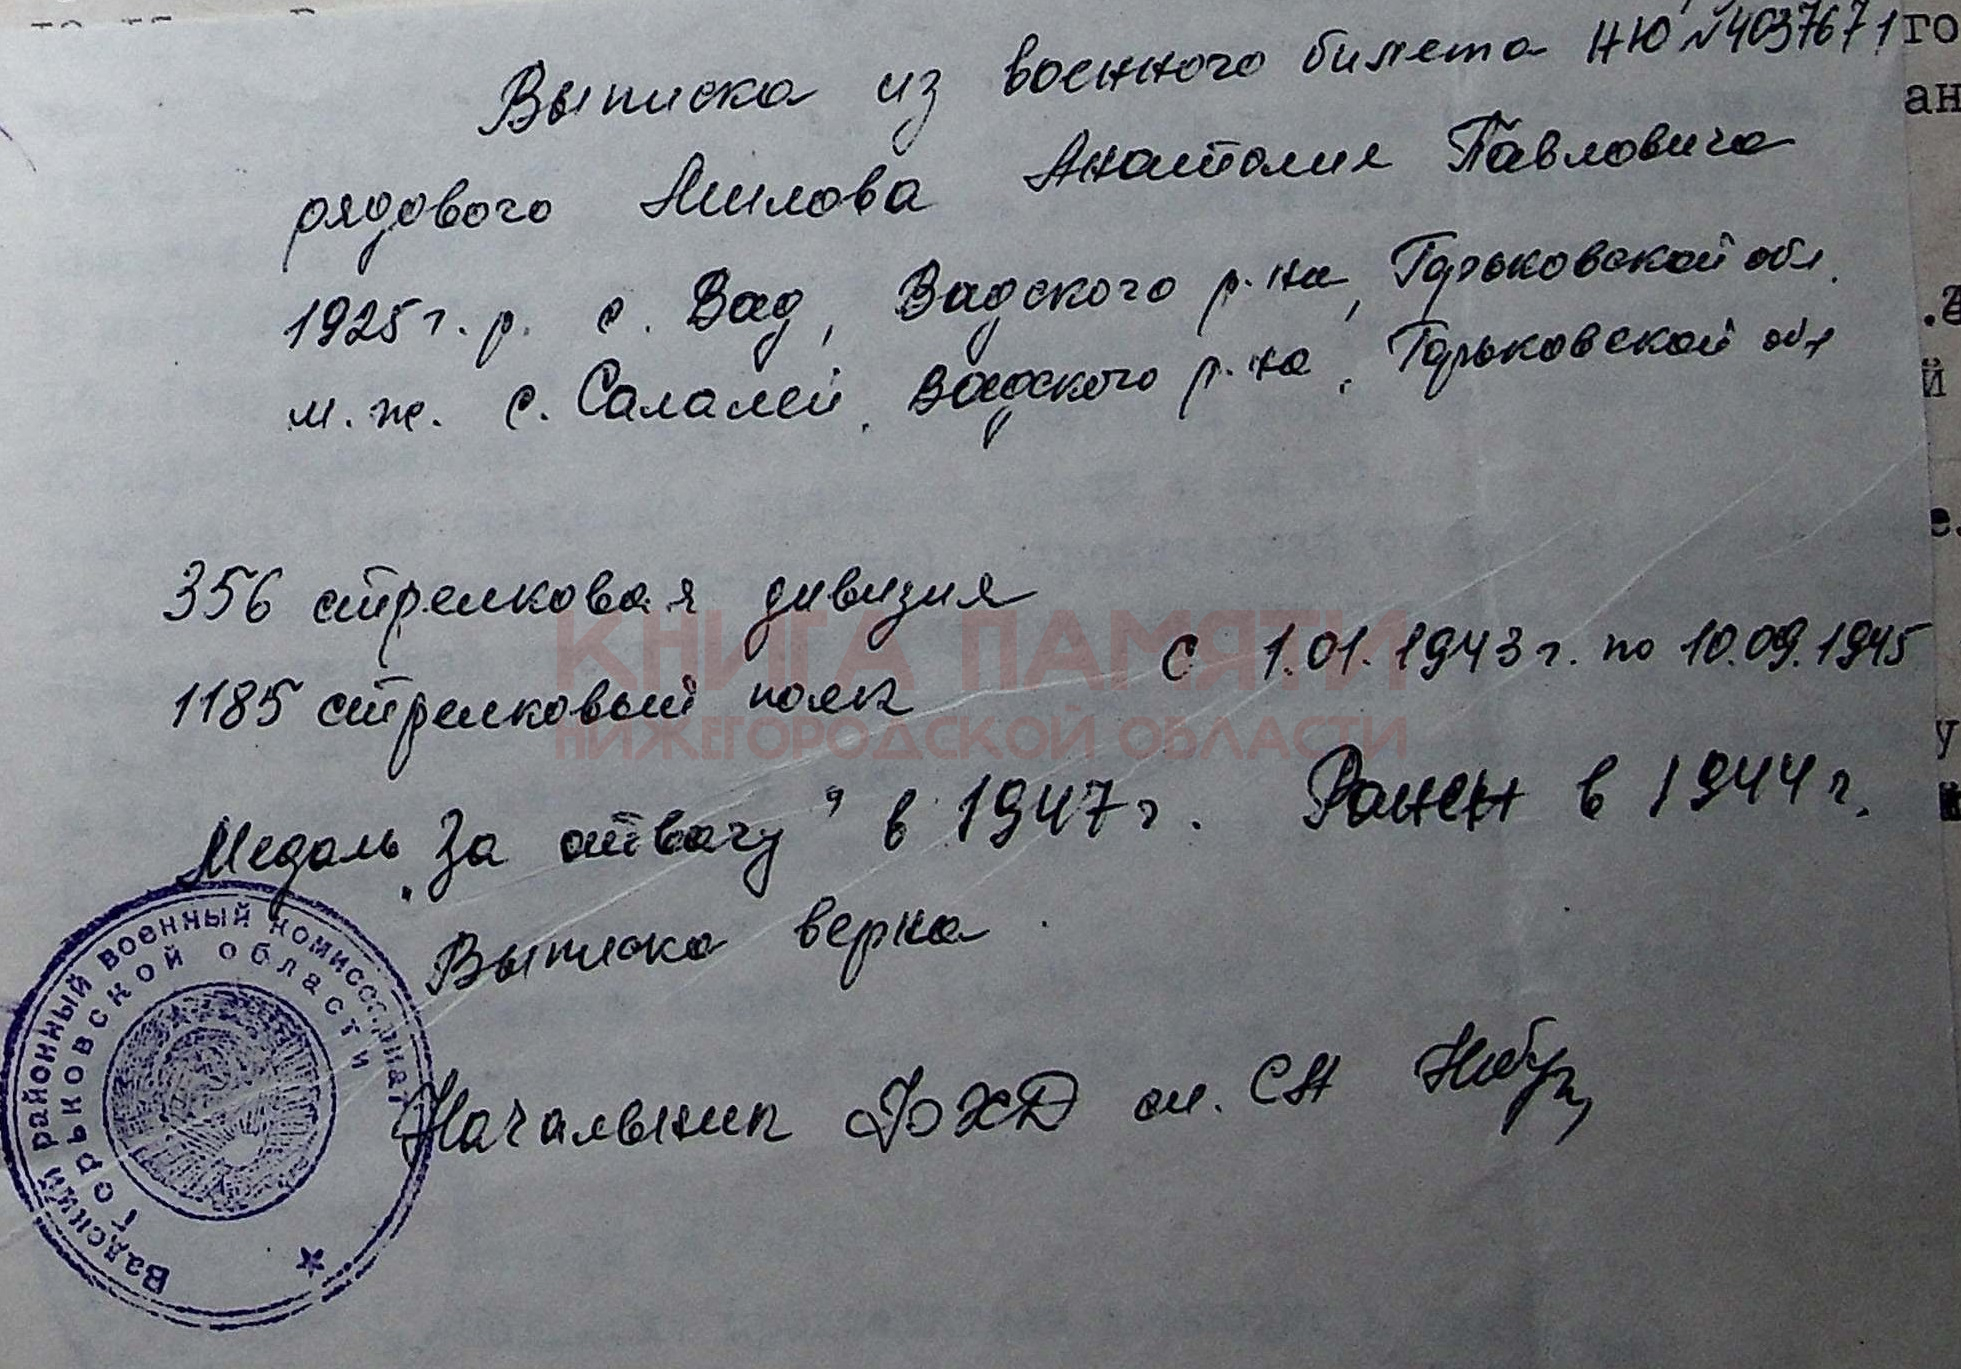 Выписка из военного билета НЮ №4037671
рядового Шилова Анатолия Павловича
1925 г. р. с. Вад, Вадского р-на, Горьковской обл.
м. ж. с. Салалей, Вадского р-на, Горьковской обл
356 стрелковая дивизия
1185 стрелковый полк с 1.01.1943 г. по 10.09.1945
Медаль „За отвагу" в 1947 г. Ранен в 1944 г.
Выписка верна
Начальник ст.
Вадский районный военный комиссариат
Горьковской области
КНИГА ПАМЯТИ
НИЖЕГОРОДСКОЙ ОБЛАСТИ
го
ан
й
е.
у